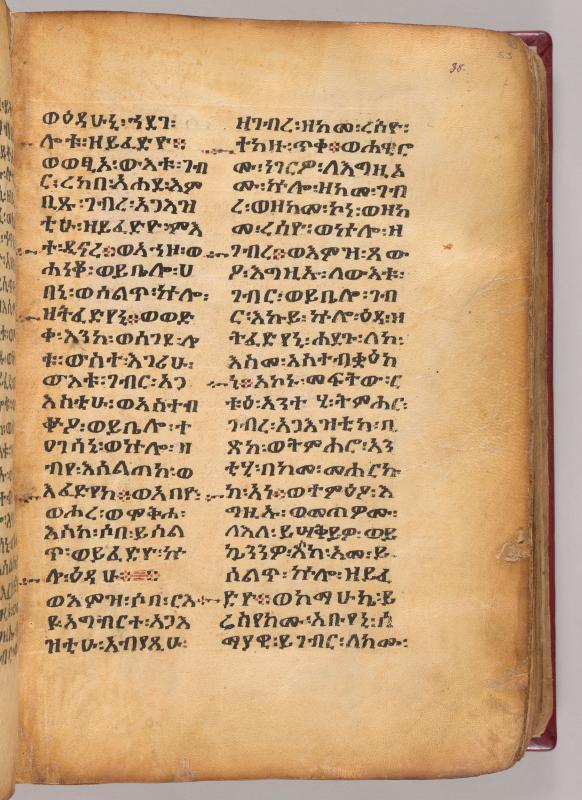 38.
53
ወዕዳሁኒ፡ኀደገ፡
ሎቱ፡ዘይፈድዮ፨
ወወፂአ፡ውእቱ፡ገብ
ር፡ረከበ፡አሐደ፡እም
ቢጹ፡ገብረ፡እጋእዝ
ቲሁ፡ዘይፈድዮ፡ምእ
ተ፡ዲናረ፨ወአኀዘ፡ወ
ሐነቆ፡ወይቤሎ፡ሀ
በኒ፡ወሰልጥ፡ኵሎ፡
ዘትፈድየኒ፨ወወድ
ቀ፡እንከ፡ወሰገደ፡ሎ
ቱ፡ውስተ፡እገሪሁ፡
ውእቱ፡ገብር፡እጋ
እስቲሁ፡ወአስተብ
ቍዖ፡ወይቤሎ፡ተ
ዐገሰኒ፡ወኵሎ፡ዘ
ብየ፡እሰልጠከ፡ወ
እፈድየከ፨ወአበየ፡
ወሐረ፡ወሞቅሖ፡
እስከ፡ሶበ፡ይሰል
ጥ፡ወይፈድዮ፡ኵ
ሎ፡ዕዳሁ፨
ወእምዝ፡ሶበ፡ርእ
ዩ፡አግብርተ፡እጋእ
ዝቲሁ፡አብያጺሁ፡
ዘገብረ፡ዘከመ፡ረሰዮ፡
ተከዙ፡ጥቀ፨ወሐዊሮ
ሙ፡ነገርዎ፡ለእግዚእ
ሙ፡ኵሎ፡ዘከመ፡ገብ
ረ፡ወዘከመ፡ኮነ፡ወዘከ
መ፡ረሰየ፡ወኵሎ፡ዘ
ገብረ፨ወእምዝ፡ጸው
ዖ፡እግዚኡ፡ለውእቱ፡
ገብር፡ወይቤሎ፡ገብ
ር፡እኩይ፡ኵሎ፡ዕዳ፡ዘ
ትፈድየኒ፡ሐደጉ፡ለከ፡
እስመ፡አስተብቋዕከ
ኒ፨አኮኑ፡መፍትው፡ር
ቱዕ፡አንተ፡ሂ፡ትምሐር፡
ገብረ፡እጋእዝቲከ፡ቢ
ጽከ፡ወትምሐሮ፡አን
ቲሂ፡በከመ፡መሐርኩ
ከ፡አነ፨ወተምዕዖ፡እ
ግዚኡ፡ወመጠዎሙ፡
ለእለ፡ይሣቅይዎ፡ወይ
ኴንንዎ፡እስከ፡አመ፡ይ
ሰልጥ፡ኵሎ፡ዘይፈ
ድዮ፨ወከማሁኬ፡ይ
ሬስየክሙ፡አቡየኒ፡ሰ
ማያዊ፡ይገብር፡ለክሙ፡